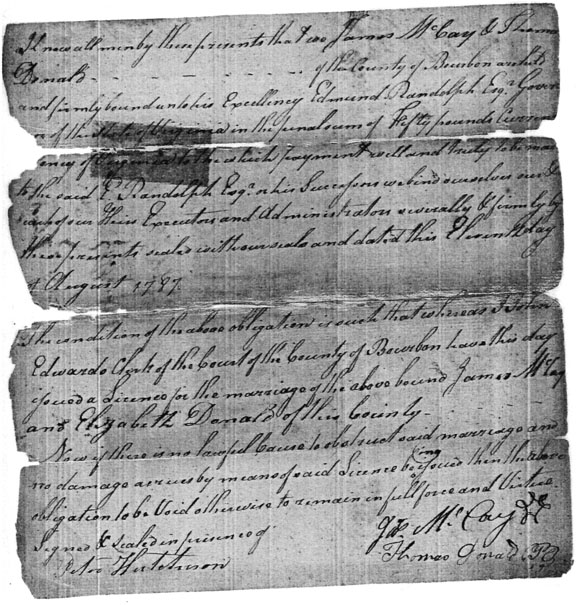 Know all men by these presents that we James McCay & Thomas
Donald - - - - - - of the County of Bourbon are held
and firmly bound unto his Excellency Edmund Randolph Esqr. Govern
or of the State of Virginia in the penal sum of Fifty pounds Curr
ency of Virginia to the which payment well and truly to be made
to the said E. Randolph Esqr. or his Successors we bind ourselves our &
each of our Heirs Executors and Administrators severally & firmly by
these presents sealed with our seals and dated this Eleventh day
of August 1787
The condition of the above obligation is such that whereas I John
Edwards Clerk of the Court of the County of Bourbon have this day
issued a Licence for the marriage of the above bound James McCay
and Elizabeth Donald of this County -
Now if there is no lawful Cause to obstruct said marriage and
no damage accrues by means of said Licence being issued then the above
obligation to be Void otherwise to remain in full force and Virtue
Signed & sealed in presence of
Jas McCay
Thomas Donald
Hutcheson